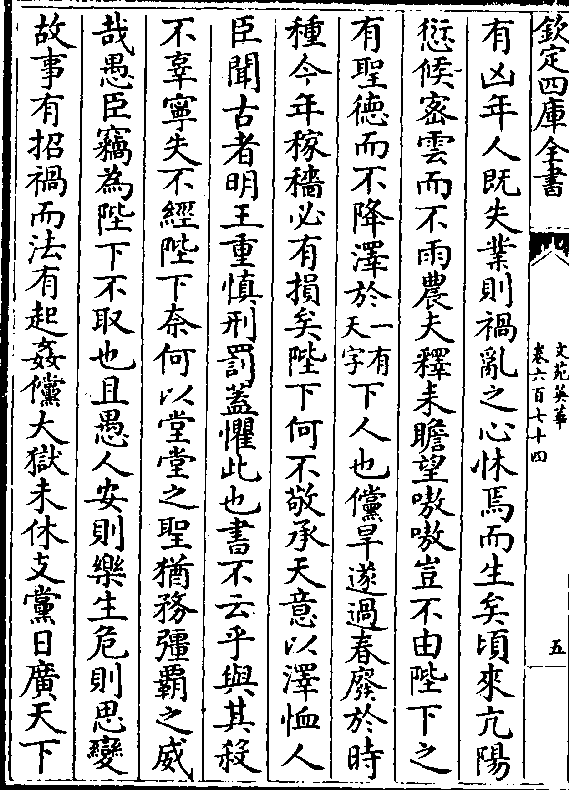 欽定四庫全書
文苑英華
卷六百七十四
五
有凶年人既失業則禍亂之心怵焉而生矣頃來亢陽
愆候密雲而不雨農夫釋耒瞻望嗷嗷豈不由陛下之
有聖德而不降澤於一有天字下人也儻旱遂過春廢於時
種今年稼穡必有損矣陛下何不敬承天意以澤恤人
臣聞古者明王重慎刑罰蓋懼此也書不云乎與其殺
不辜寧失不經陛下奈何以堂堂之聖猶務彊霸之威
哉愚臣竊為陛下不取也且愚人安則樂生危則思變
故事有招禍而法有起姦儻大獄未休支黨日廣天下